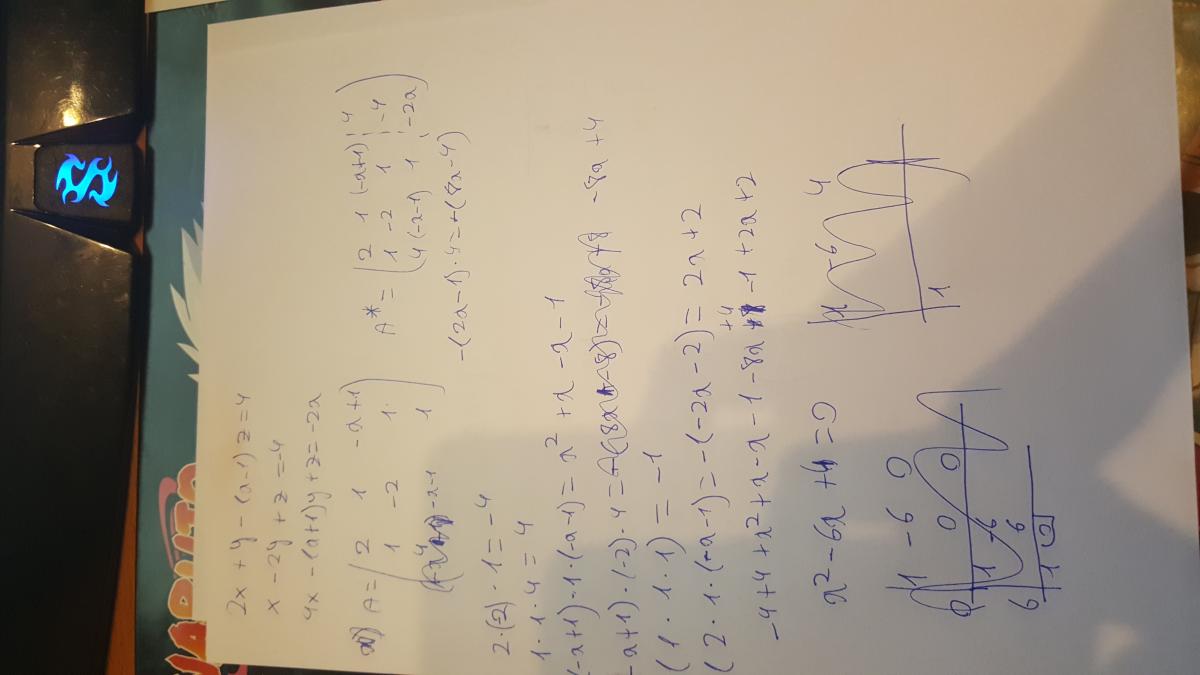 2x + y - (a-1) z = 4
x - 2y + z = -4
4x - (a+1)y + z = -2a
A = ( 2 1 -a+1
1 -2 1
4 -a-1 1 )
A* = ( 2 1 (-a+1) | 4
1 -2 1 | -4
4 (-a-1) 1 | -2a )
2·(-2)·1 = -4
1·1·4 = 4
(-a+1)·1·(-a-1) = a² + a - a - 1
-(2a-1)·4 = -(8a-4)
-a+1)·(-2)·4 = -8a + 4
(1·1·1) = -1
(2·1·(-a-1) = -(-2a-2) = 2a+2
-4+4+a²+a-a-1-8a+4-1+2a+2
a² - 6a + 4 = 0
1 -6 0
0 0
1 -6
6 6
1 0
-6 4
1